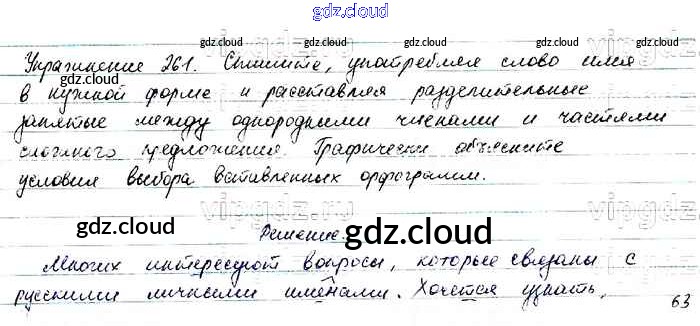 gdz.cloud
gdz.cloud gdz.cloud gdz.cloud gdz.cloud
Упражнение 261. Спишите, употребляя слово имя
в нужной форме и расставляя разделительные
запятые между однородными членами и частями
сложного предложения. Графически объясните
условия выбора вставленных орфограмм.
vipgdz.ru
gdz.cloud
Решение
gdz.cloud
Многих интересуют вопросы, которые связаны с
русскими личными именами. Хочется узнать,
63